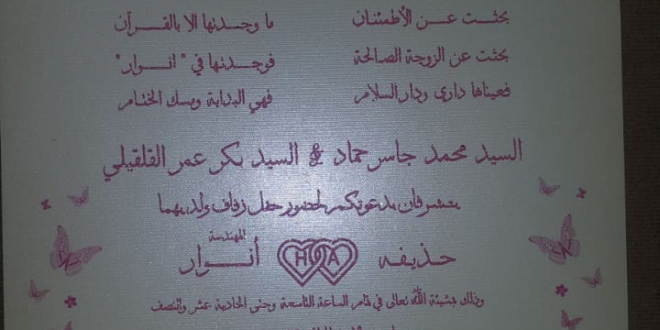 بحثت عن الأطمئنان ما وجدتها الا بالقرآن
بحثت عن الزوجة الصالحة فوجدتها في "انوار"
فعيناها داري ودار السلام فهي البداية ومسك الختام
السيد محمد جاسر حماد & السيد بكر عمر القلقيلي
يتشرفان بدعوتكم لحضور حفل زفاف ولديهما
المهندسة
حذيفه H A أنوار
وذلك بمشيئة الله تعالى في تمام الساعة التاسعة وحتى الحادية عشر والنصف